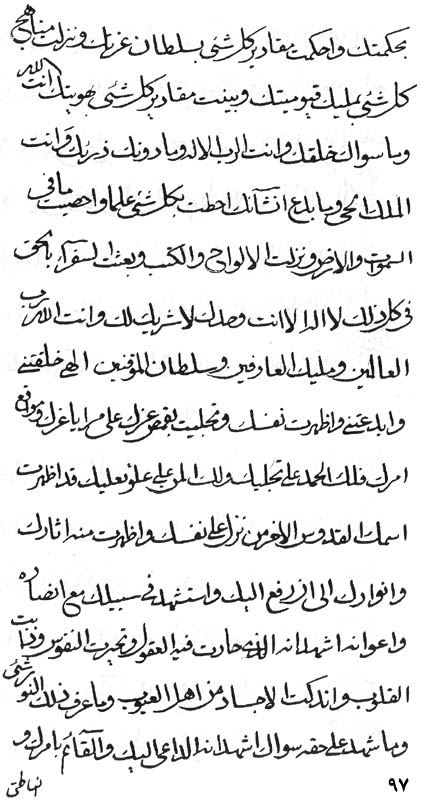 بحكمتك واحكمت مقادير كلشئ بسلطان عزتك ونزلت مناهج
كلشئ بمليك قيوميتك وبينت مقادير كلشئ بهويتك انت الله
وما سواك خلقك وانت الرب الاله وما دونك ذرئك وانت
الملك الحى وما بلدع انشآئك احطت بكلشئ علما واحصيت ما فى
السموات والارض ونزلت الالواح والكتب وبعثت السفرآء بالحق
فى كل ذلك لا اله الا انت وحدك لا شريك لك وانت الله رب
العالمين ومليك العارفين وسلطان الموقنين الهى خلقتنى
وابدعتنى واظهرت نفسك وتجليت بقمص عزك على مرايا عزك ومواقع
امرك فلك الحمد على تجليك ولك المن على علو تعليك قد اظهرت
اسمك القدوس الاخر من نزل على نفسك واظهرت منه اثارك
وانوارك الى ان رفع اليك واستشهد فى سبيلك مع انصاره
واعوانه اشهد انه الذى حارت فيه العقول وتحيرت النفوس وذابت
القلوب واندكت الاجساد من اهل العيوب وما عرف ذلك النور شئ
وما شهد على حقه سواك اشهد انه الداعى اليك والقآئم بامرك و
٩٧
الناطق